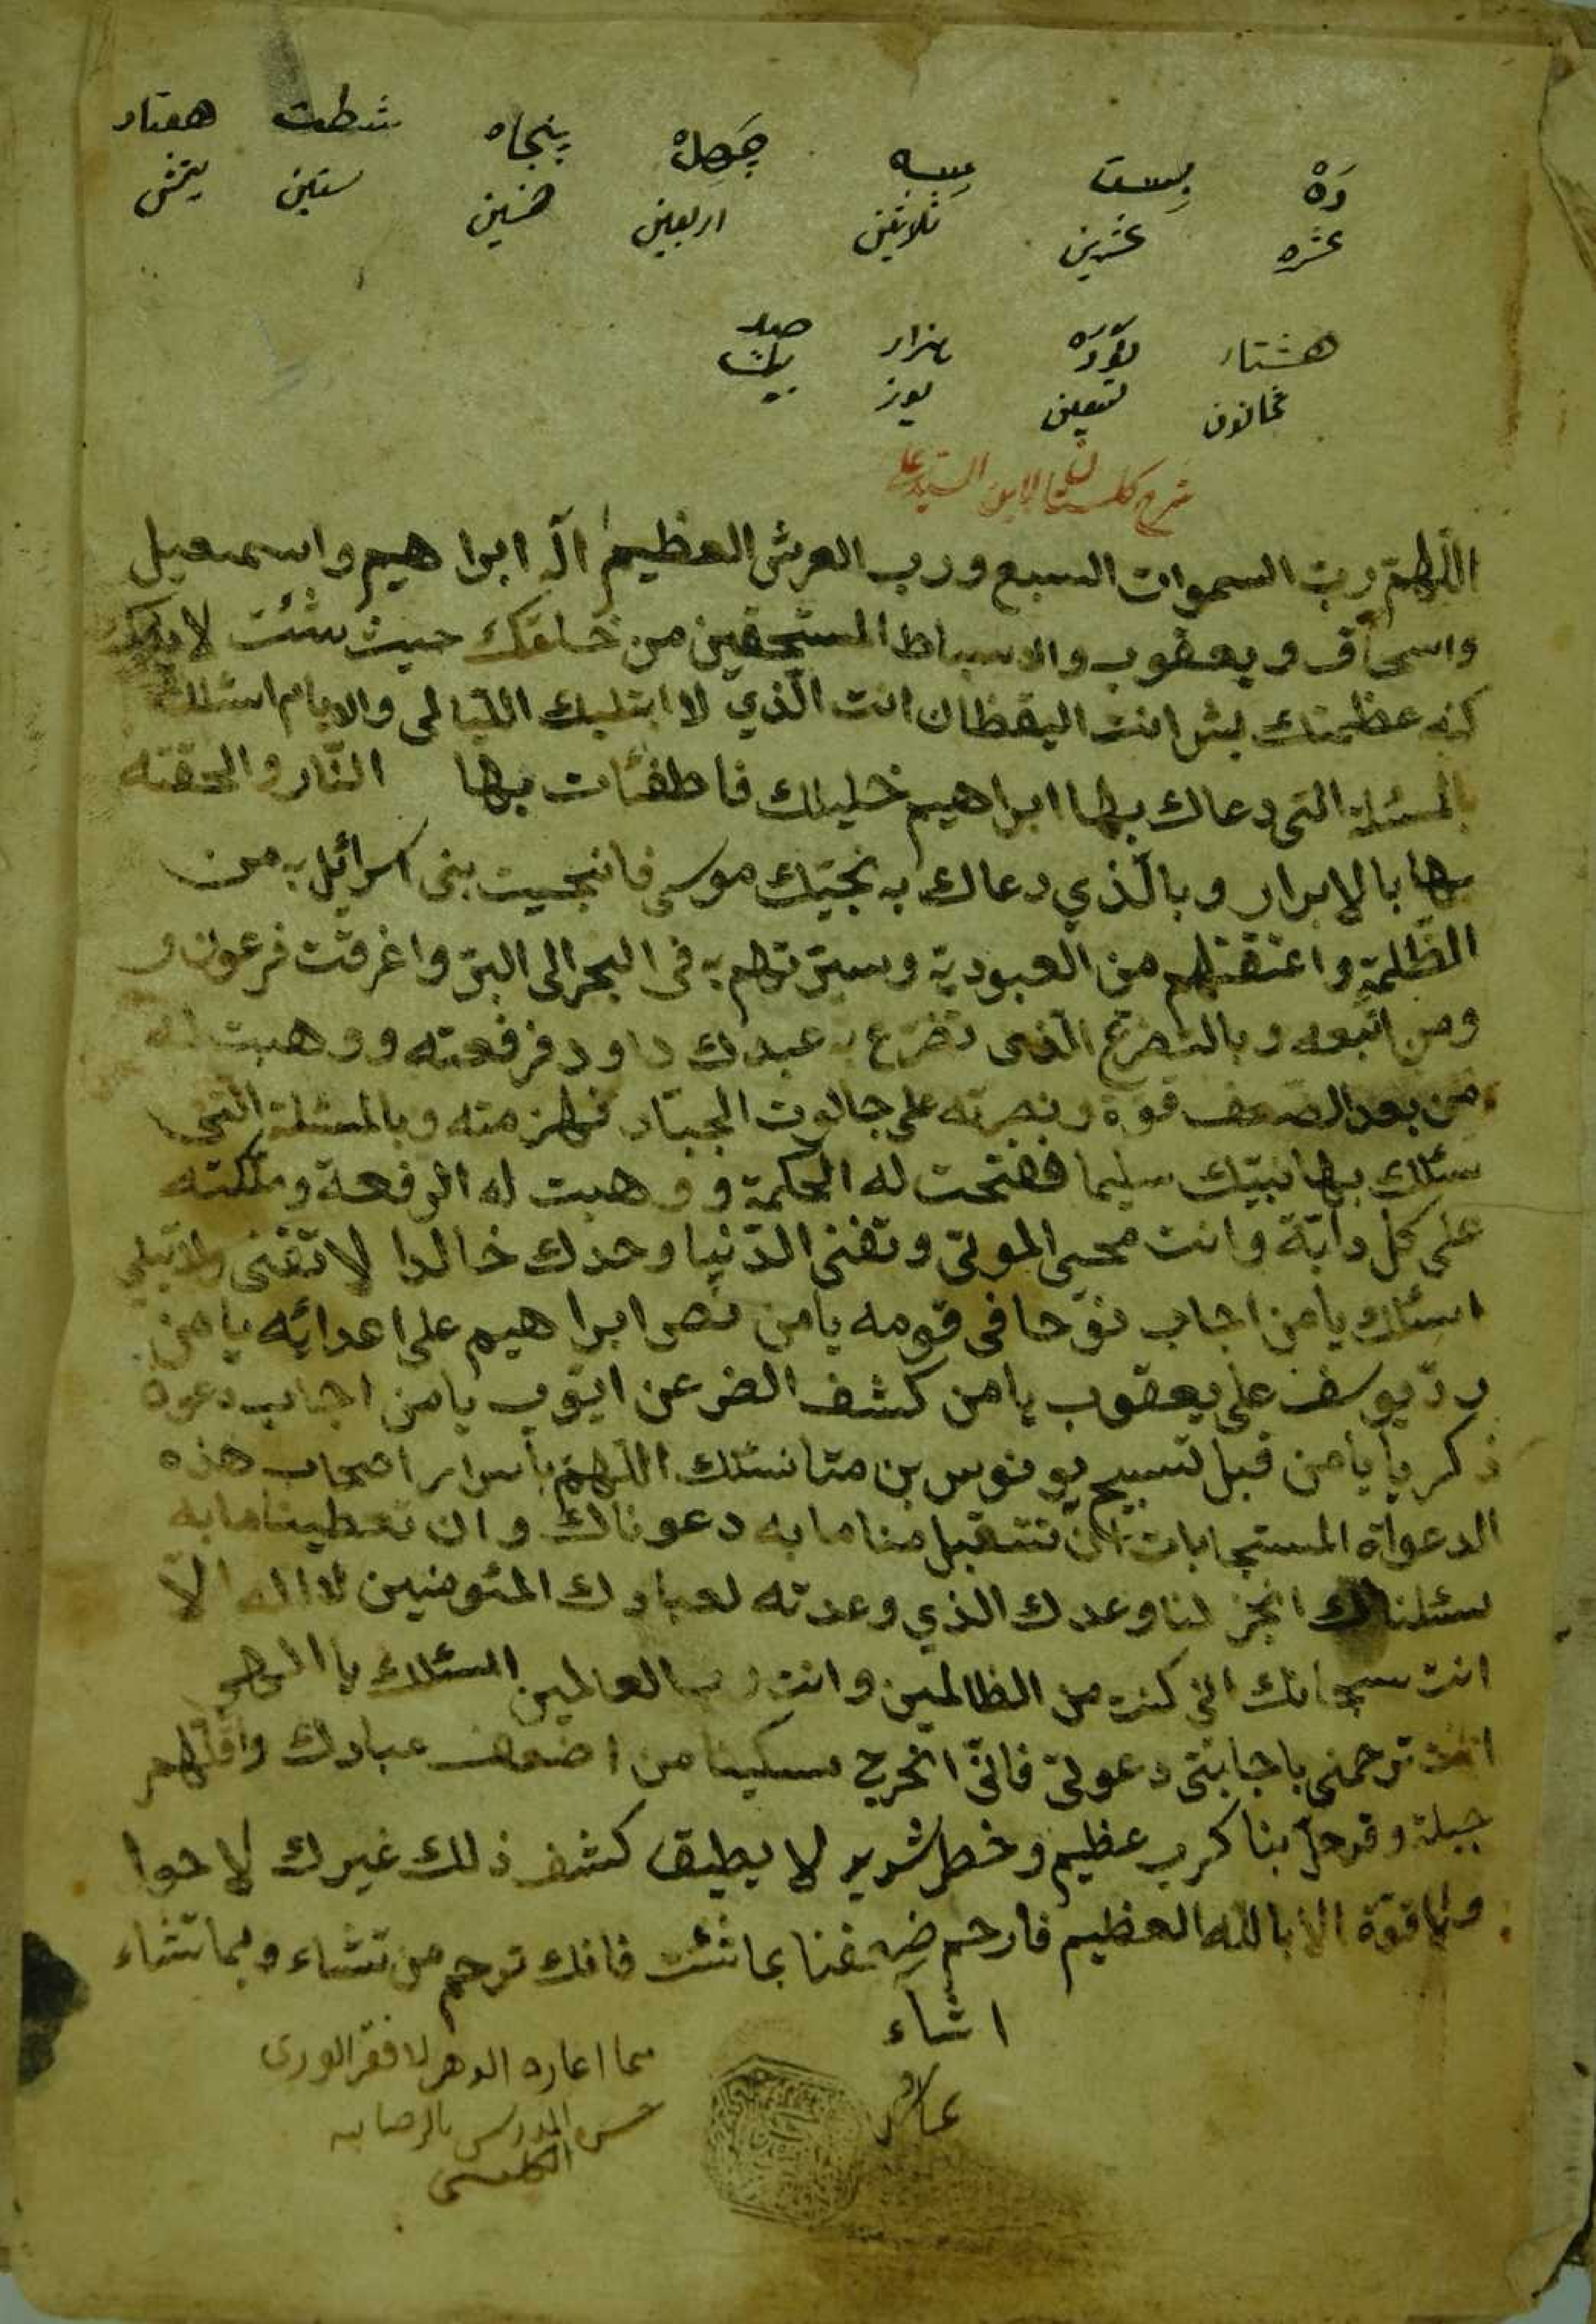 ده بیست سیه چهل پنجاه شصت هفتاد
عشره عشرین ثلاثین اربعین خمسین ستین یتمش
هشتاد نوده هزار صد
ثمانون تسعین یوز بیك
شرح كلستان لابن السید علی
اللهم رب السموات السبع ورب العرش العظیم اله ابراهیم واسمعیل
واسحاق ویعقوب والاسباط المستحقین من خلقك حیث شئت لا یدرك
كنه عظمتك بشر انت الیقظان انت الذی لا ابتلیك اللیالی والایام اسئلك
بالمسئلة التی دعاك بها ابراهیم خلیلك فاطفئات بها النار والحقته
بها بالابرار وبالذی دعاك به نجیك موسی فانجیت بنی اسرائل به من
الظلمة واعتقتهم من العبودیة وسیرتهم به فی البحر الی البر واغرقت فرعون و
ومن اتبعه وبالتضرع الذی تضرع به عبدك داود فرفعته ووهبت له
من بعد الضعف قوة ونصرته علی جالوت الجبار فهزمته وبالمسئلة التی
سئلك بها نبیك سلیما ففتحت له الحكمة ووهبت له الرفعة وملكته
علی كل دابة وانت محیی الموتی وتفنی الدنیا وحدك خالدا لا تفنی ولا تبلی
اسئلك یا من اجاب نوحا فی قومه یا من نصر ابراهیم علی اعدائه یا من
رد یوسف علی یعقوب یا من كشف الضر عن ایوب یا من اجاب دعوة
ذكریا یا من قبل تسبیح یونوس بن متا نسئلك اللهم باسرار اصحاب هذه
الدعواة المستجابات ان تتقبل منا ما به دعوناك وان تعطینا ما به
سئلناك انجز لنا وعدك الذی وعدته لعبادك المئومنین لا اله الا
انت سبحانك انی كنت من الظالمین وانت رب العالمین اسئلك یا الهی
انت ترحمنی باجابتی دعوتی فانی اخرج مسكینا من اضعف عبادك واقلهم
حیلة وقد حل بنا كرب عظیم وخطر شدید لا یطیق كشف ذلك غیرك لا حوا
ولا قوة الا بالله العظیم فارحم ضعفنا بما شئت فانك ترحم من تشاء وبما تشاء
اشآء
مما اعاره الدهر لافقر الوری
حسن المدرس بالرضایه